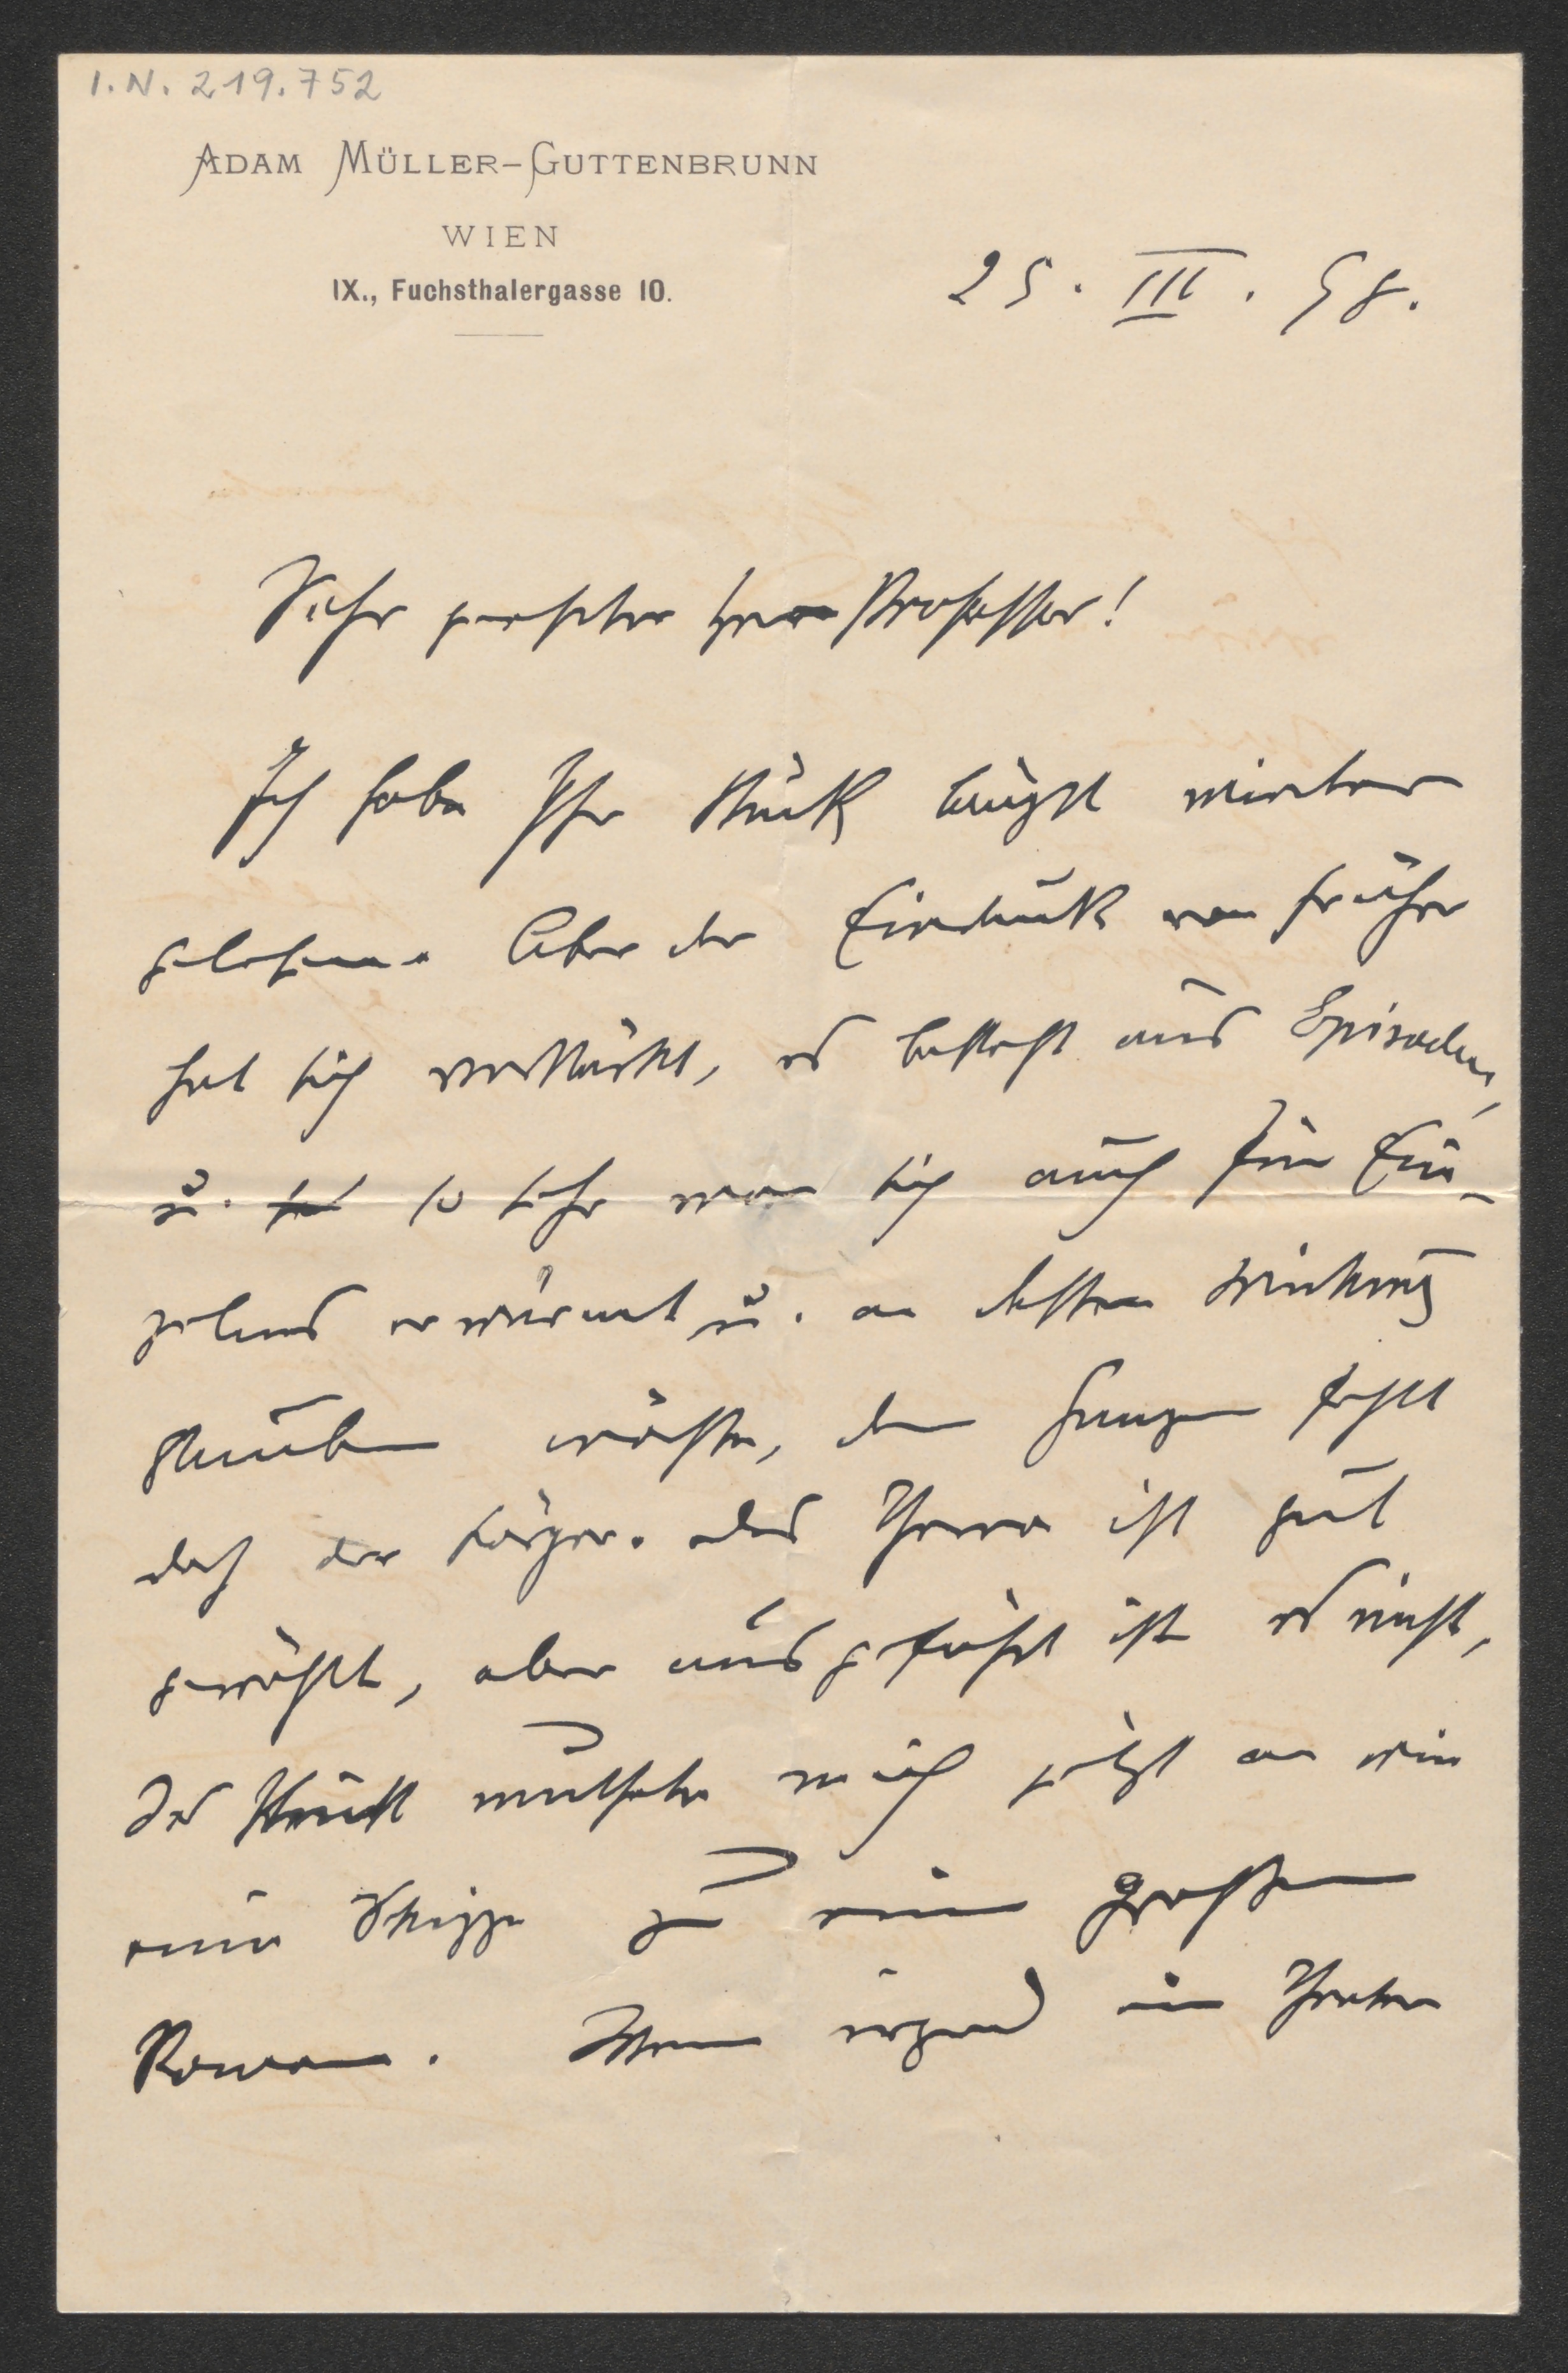 I.N. 219.752
ADAM MÜLLER-GUTTENBRUNN
WIEN
IX., Fuchsthalergasse 10.
25. III. 98.
Sehr geehrter Herr Professor!
Ich habe Ihr Stück längst wieder
gelesen. Aber der Eindruck von früher
hat sich verstärkt, es besteht aus Episoden,
u. so sehr man sich auch für Ein-
zelnes erwärmt u. an dessen Wirkung
glauben möchte, dem Ganzen fehlt
doch der Körper. Das Thema ist gut
gewählt, aber ausgeführt ist es nicht,
das Stück muthete mich jetzt an wie
eine Skizze zu einem großen
Roman. Wenn irgend ein Theater